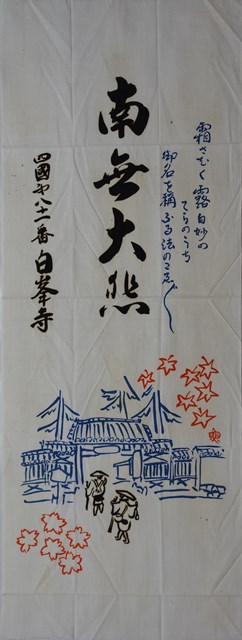 霜さむく露白妙の
てらのうち
御名を稱ふる法のこゑ〴〵
南無大悲
四國第八十一番白峯寺